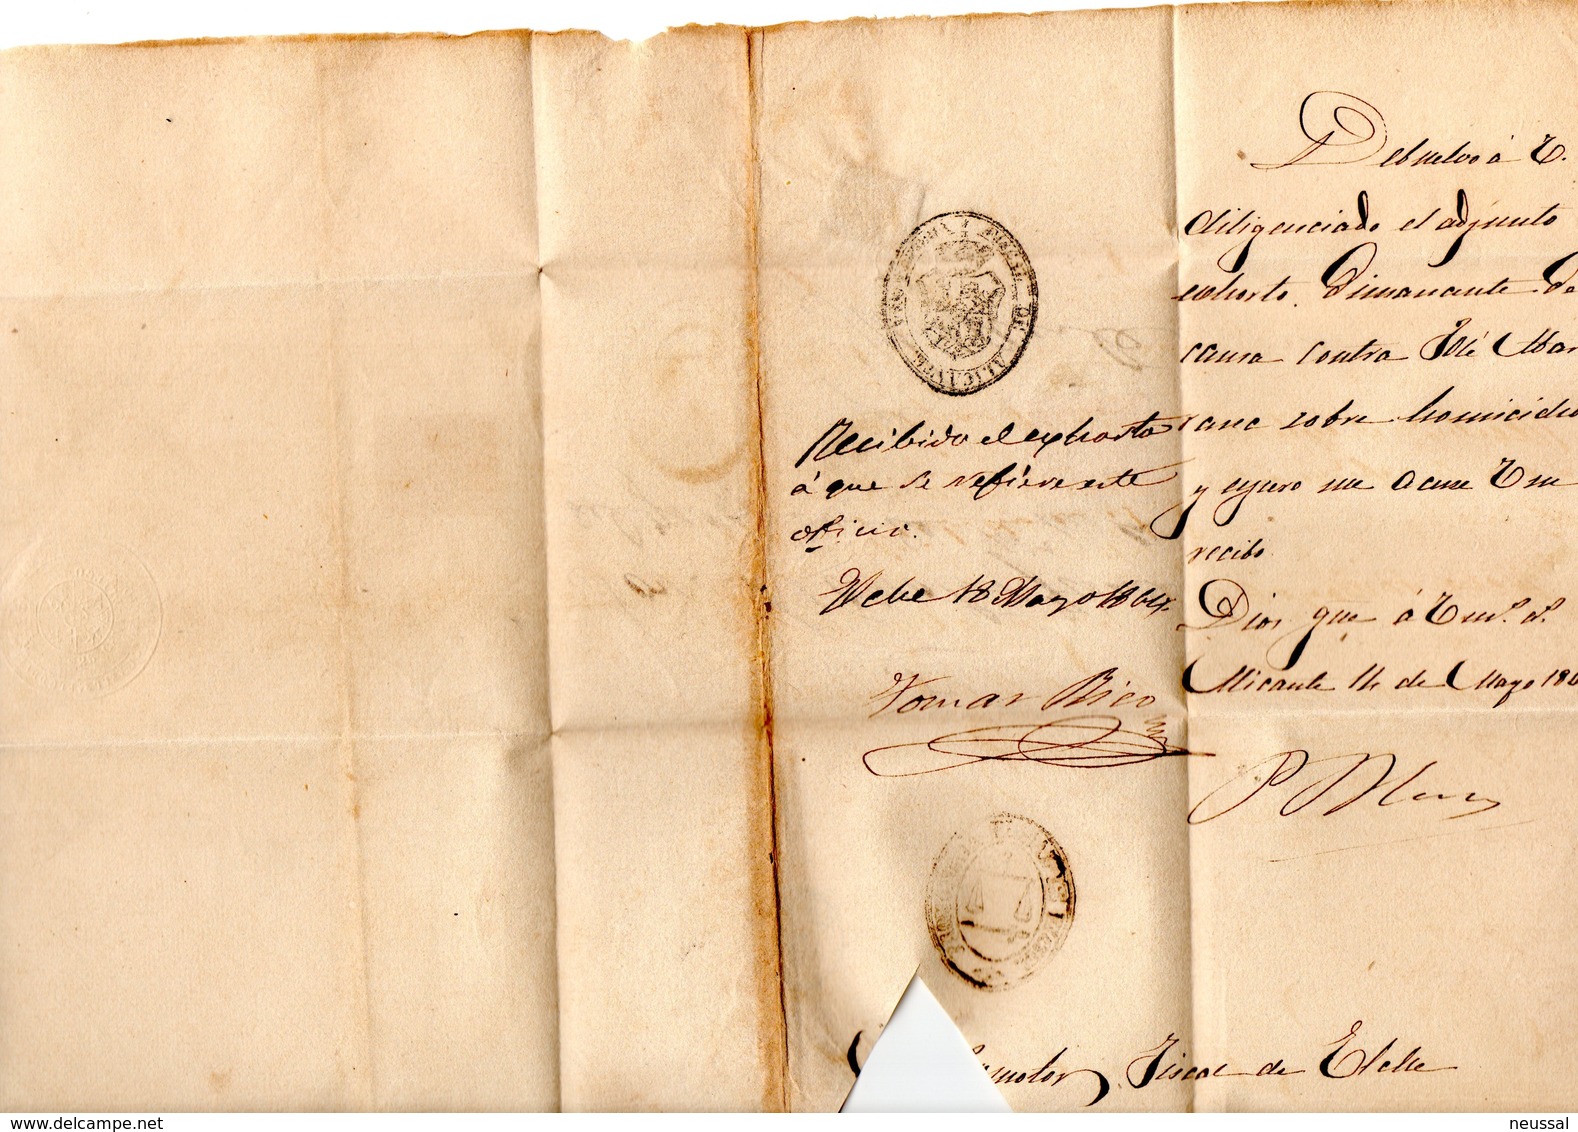 Debuelvo á V.
diligenciado el adjunto
exhorto dimanante de
causa contra José Mar
sobre homicidio
y espero me acuse V. su
recibo.
Dios gue á V. m.s a.s
Alicante 14 de Mayo 186
DE ALICANTE
Recibido el exhorto
á que se refiere este
oficio.
Elche 18 Mayo 1864.
Tomas Rico
Fiscal de Elche
www.delcampe.net
neussal